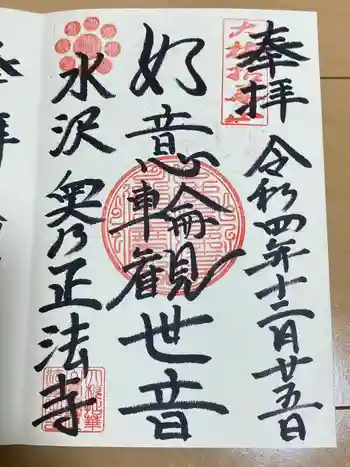 奉拝
令和四年十二月廿五日
如意輪観世音
水沢 奥乃正法寺